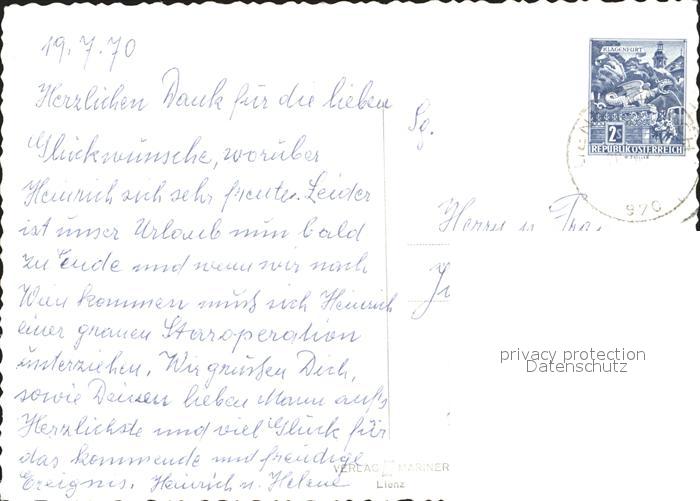 19.7.70
Herzlichen Dank für die lieben
Glückwünsche, worüber
Heinrich sich sehr freute. Leider
ist unser Urlaub nun bald
zu Ende und wenn wir nach
Wien kommen muß sich Heinrich
einer grauen Staroperation
unterziehen. Wir grüßen Dich,
sowie Deinen lieben Mann aufs
Herzlichste und viel Glück für
das kommende und freudige
Ereignis. Heinrich u. Helene
KLAGENFURT
2S
REPUBLIK ÖSTERREICH
970
Sg.
Herrn u
privacy protection
Datenschutz
VERLAG MARINER
Lienz